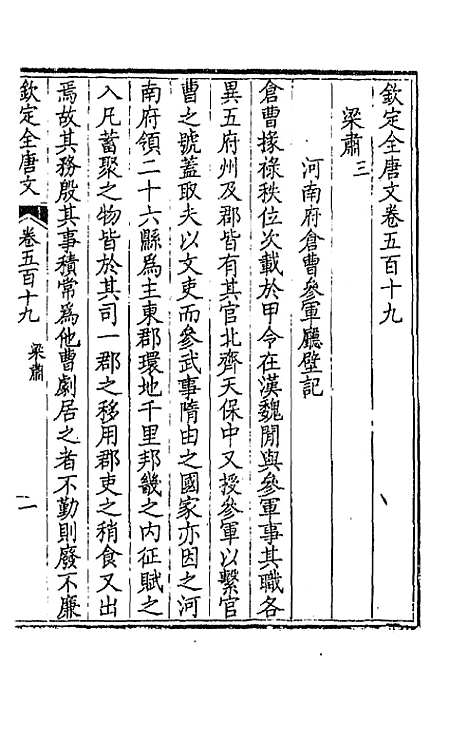 欽定全唐文卷五百十九
梁肅三
河南府倉曹參軍廳壁記
倉曹掾祿秩位次載於甲令在漢魏閒與參軍事其職各
異五府州及郡皆有其官北齊天保中又授參軍以繫官
曹之號蓋取夫以文吏而參武事隋由之國家亦因之河
南府領二十六縣爲主東郡環地千里邦畿之內征賦之
入凡蓄聚之物皆於其司一郡之移用郡吏之稍食又出
焉故其務殷其事積常爲他曹劇居之者不勤則廢不廉
欽定全唐文
卷五百十九
梁肅
一